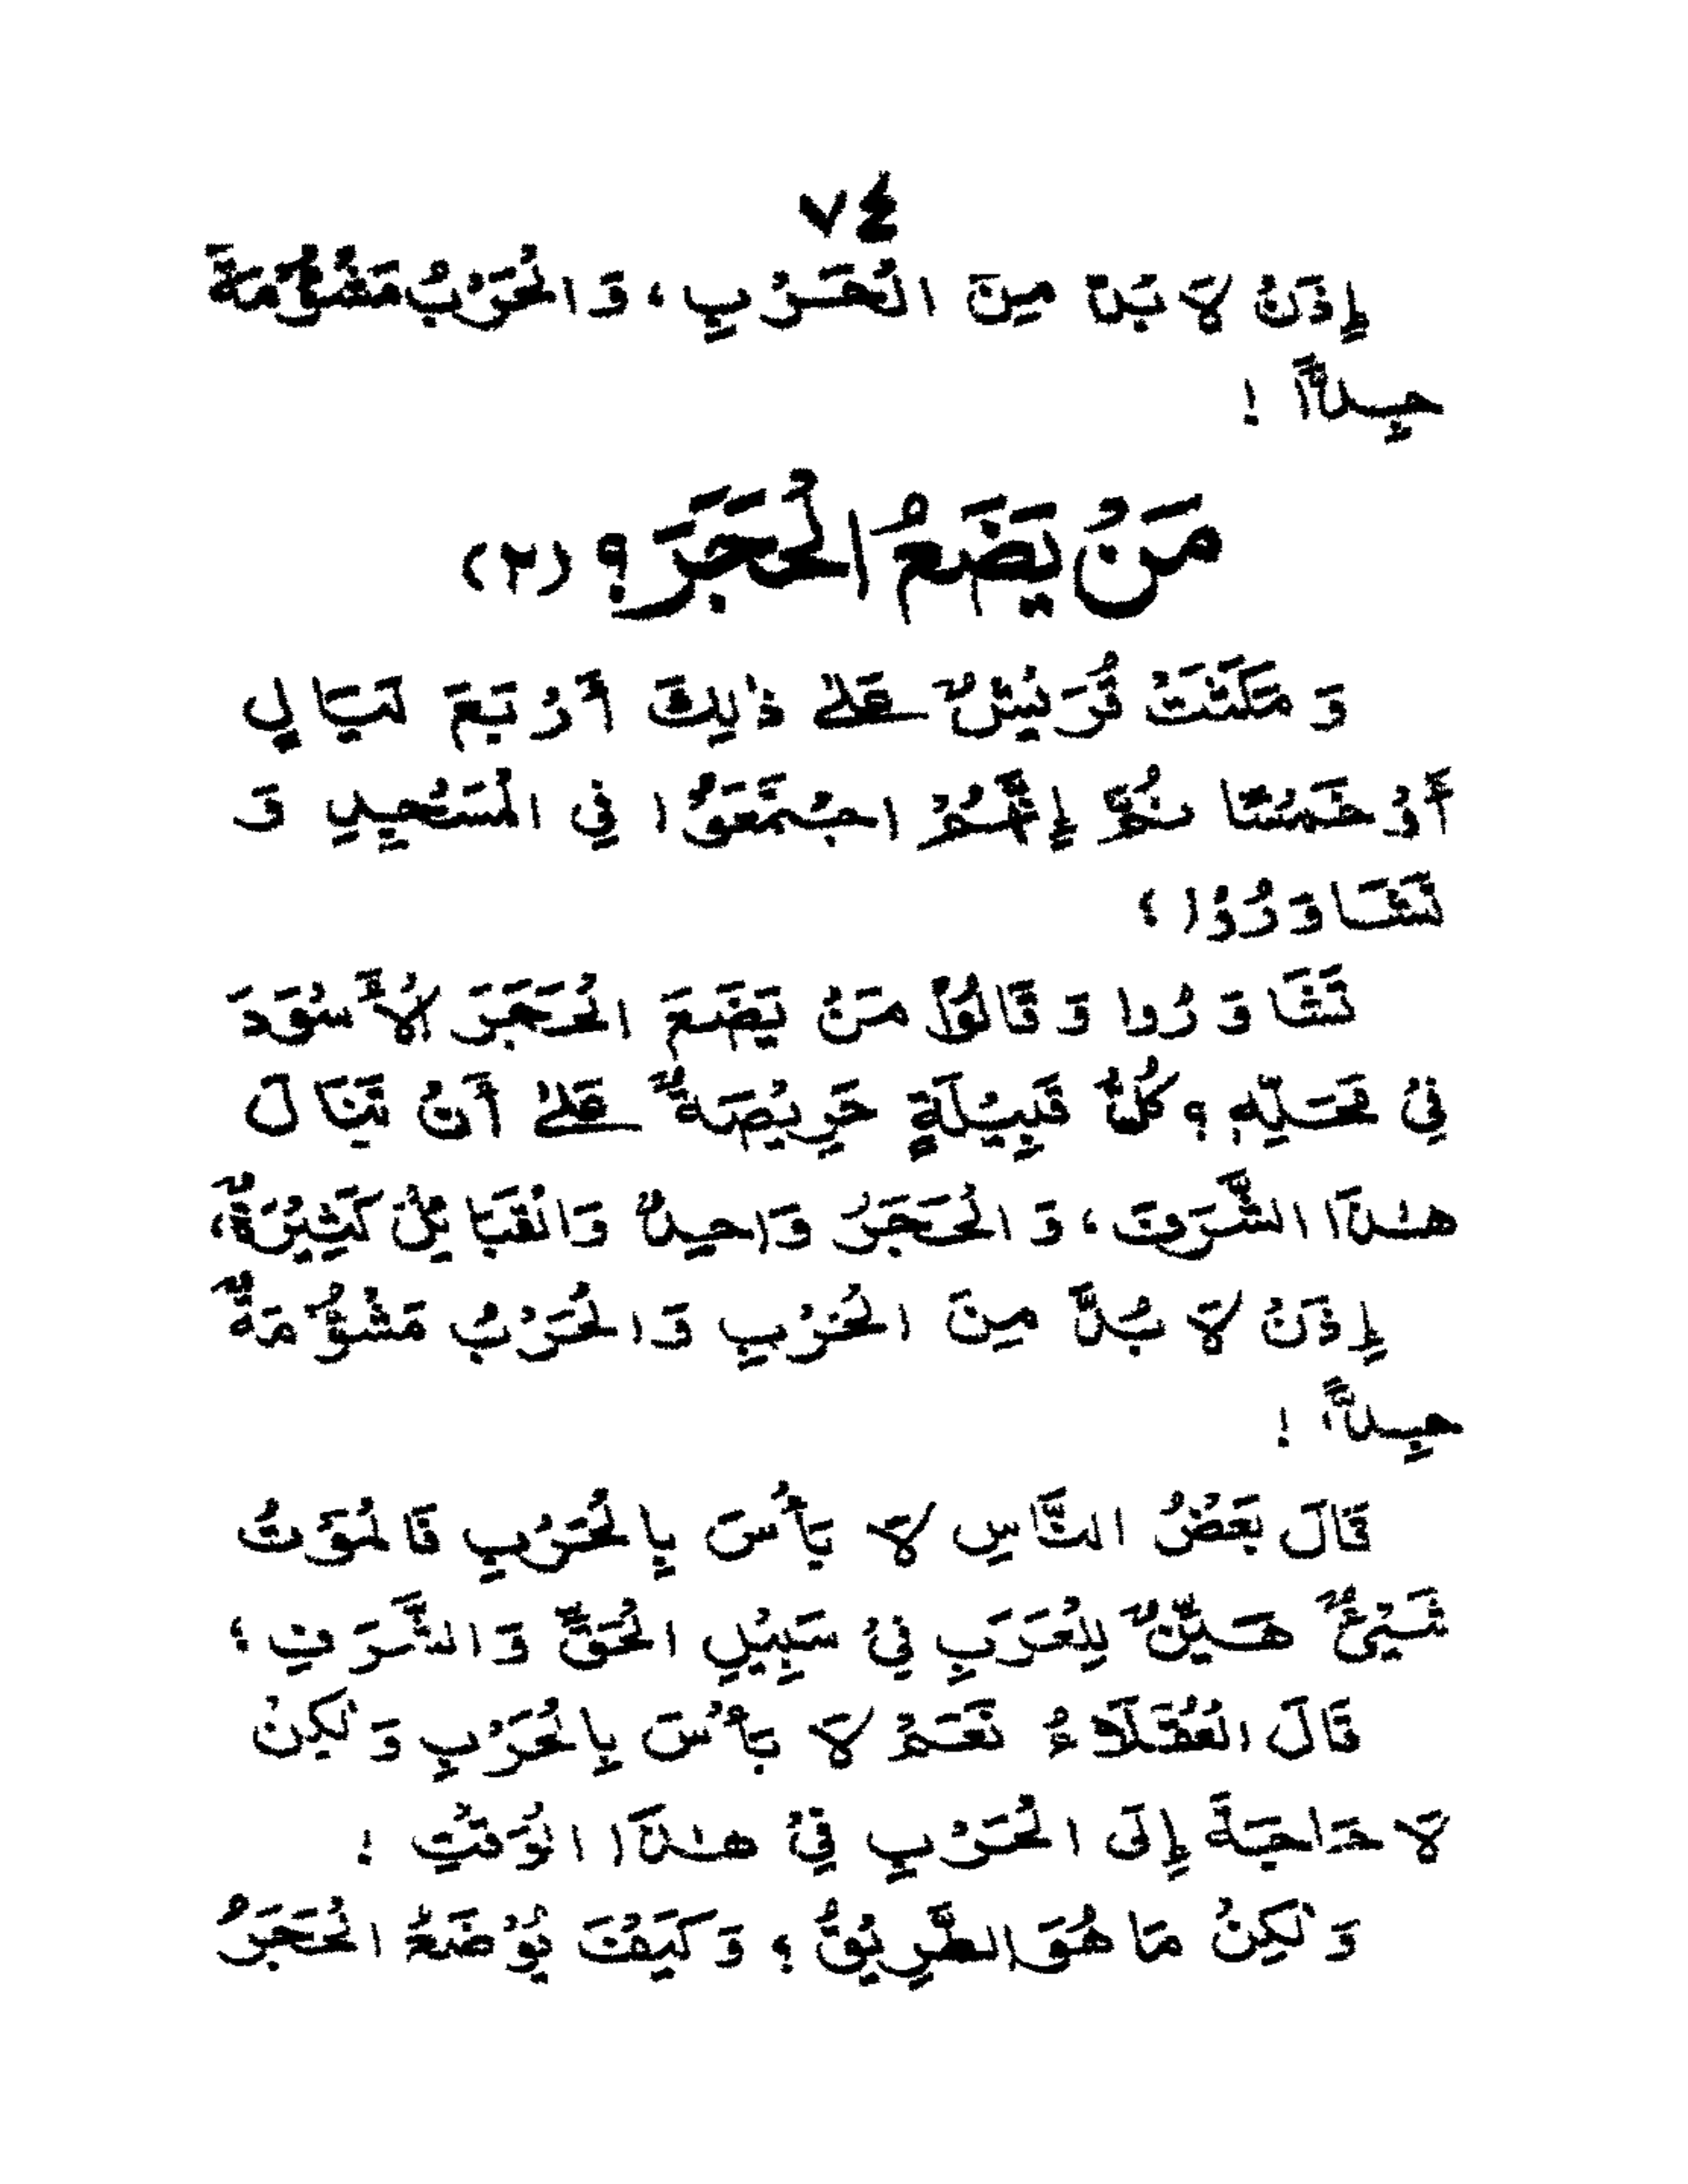 ٧٤
إِذَنْ لَا بُدَّ مِنَ الْحَرْبِ، وَالْحَرْبُ مَشْؤُمَةٌ
جِدًّا !
مَنْ يَضَعُ الْحَجَرَ؟ (٢)
وَ مَكَثَتْ قُرَيْشٌ عَلىٰ ذٰلِكَ أَرْبَعَ لَيَالٍ
أَوْ خَمْسًا ثُمَّ إِنَّهُمْ اجْتَمَعُوْا فِي الْمَسْجِدِ وَ
تَشَاوَرُوْا ؛
تَشَاوَرُوا وَقَالُوْا مَنْ يَضَعَ الْحَجَرَ الْأَسْوَدَ
فِيْ مَحَلِّهِ؟ كُلُّ قَبِيْلَةٍ حَرِيْصَةٌ عَلىٰ أَنْ تَنَالَ
هٰذَا الشَّرَفَ، وَالْحَجَرُ وَاحِدٌ وَالْقَبَائِلُ كَثِيْرَةٌ،
إِذَنْ لَا بُدَّ مِنَ الْحَرْبِ وَالْحَرْبُ مَشْؤُمَةٌ
جِدًّا !
قَالَ بَعْضُ النَّاسِ لَا بَأْسَ بِالْحَرْبِ فَالْمَوْتُ
شَيْئٌ هَيِّنٌ لِلْعَرَبِ فِيْ سَبِيْلِ الْحَقِّ وَالشَّرَفِ؛
قَالَ الْعُقَلَاءُ نَعَمْ لَا بَأْسَ بِالْحَرْبِ وَلٰكِنْ
لَا حَاجَةَ إِلَى الْحَرْبِ فِيْ هٰذَا الْوَقْتِ !
وَلٰكِنْ مَا هُوَ الطَّرِيْقُ ؟ وَكَيْفَ يُوْضَعُ الْحَجَرُ